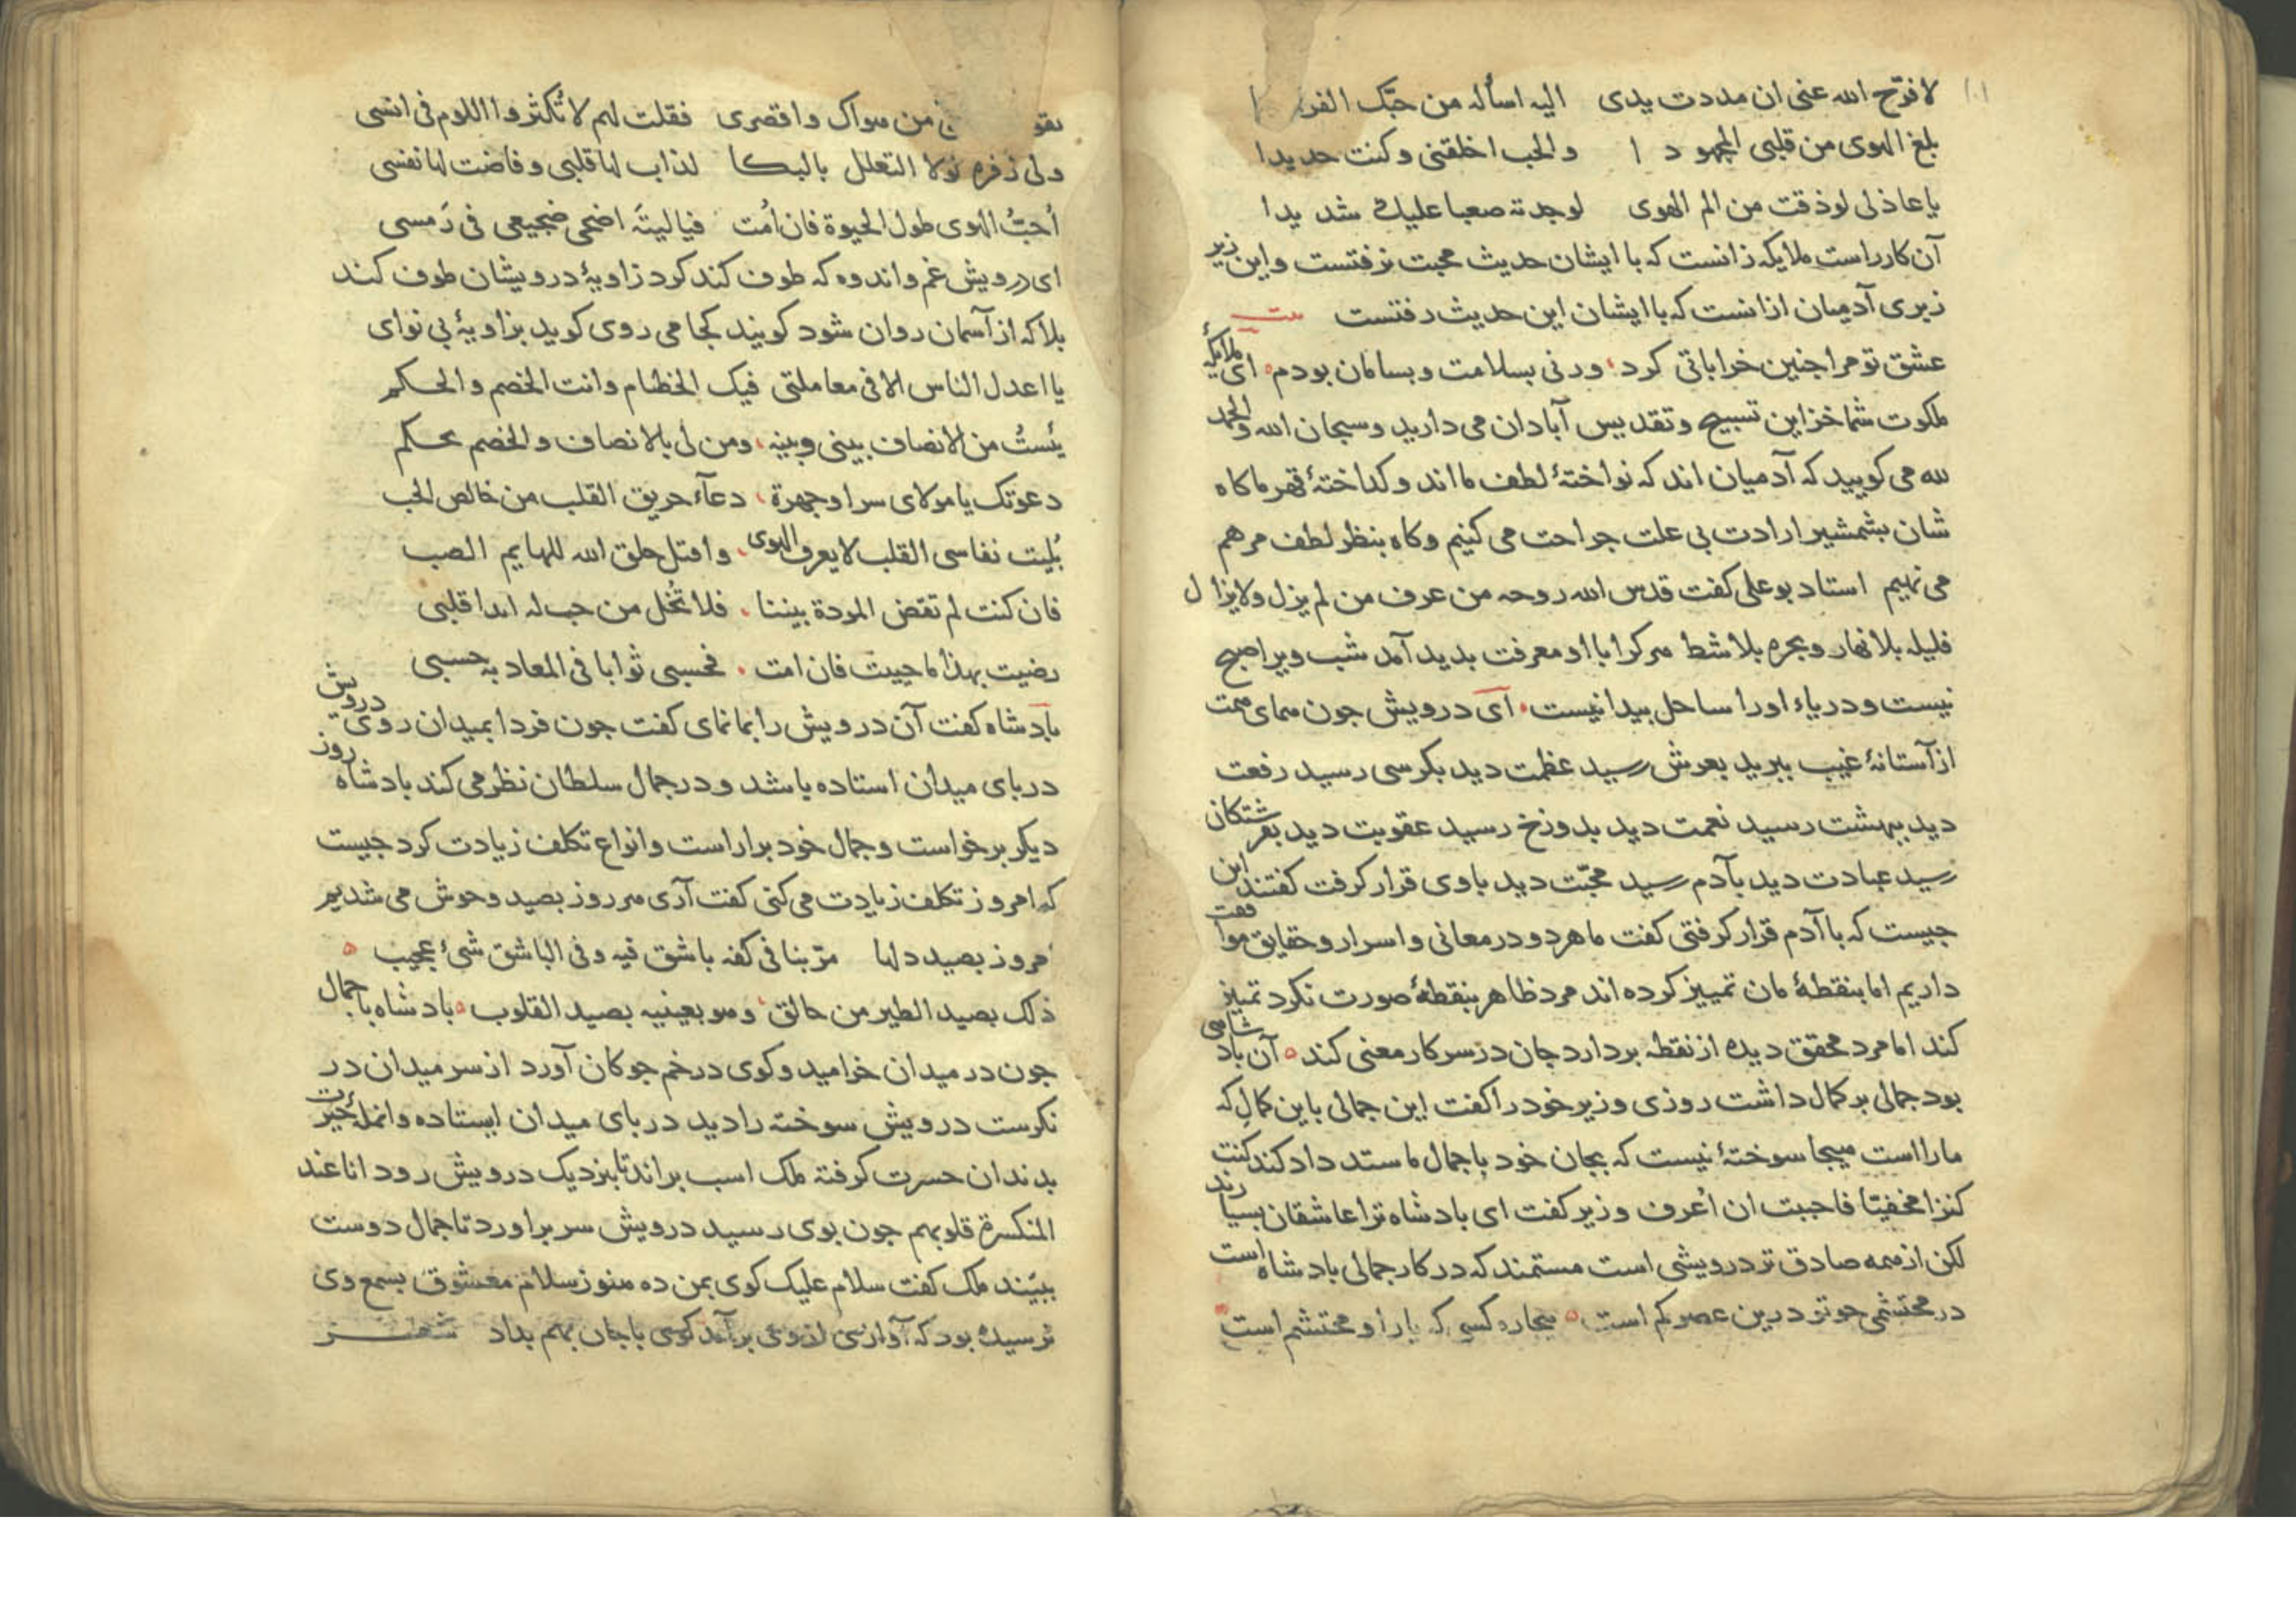 لا فرّح الله عنی ان مددت یدی الیه اساله من حبّک الفر
بلغ الهوی من قلبی المجهو د ا والحب اخلقنی وکنت حدیدا
یا عاذلی لو ذقت من الم الهوی لوجدته صعبا علیک شدیدا
آن کار راست ملایکه زانست که با ایشان حدیث محبت نرفتست و این زیر
زبری آدمیان ازانست که با ایشان این حدیث رفتست بیت
عشق تو مرا جنین خراباتی کرد ورنی بسلامت و بسامان بودم ای ملایکهٔ
ملکوت شما خزاین تسبیح و تقدیس آبادان می دارید و سبحان الله والحمد
لله می کویید که آدمیان اند که نواختهٔ لطف ما اند و کداختهٔ قهر ما کاه
شان بشمشیر ارادت بی علت جراحت می کنیم و کاه بنظر لطف مرهم
می نهیم استاد بوعلی کفت قدس الله روحه من عرف من لم یزل ولا یزال
فلیله بلا نهار وبحره بلا شط هر کرا با او معرفت بدید آمد شب ویرا صبح
نیست و دریاء او را ساحل پیدا نیست ای درویش جون همای محبت
از آستانهٔ غیب ببرید بعرش رسید عظمت دید بکرسی رسید رفعت
دید ببهشت رسید نعمت دید بدوزخ رسید عقوبت دید بفرشتکان
رسید عبادت دید بآدم رسید محبّت دید باوی قرار کرفت کفتند این
جیست که با آدم قرار کرفتی کفت ما هر دو در معانی و اسرار و حقایق موافقت
داریم اما بنقطهٔ مان تمییز کرده اند مرد ظاهر بنقطهٔ صورت نکرد تمییز
کند اما مرد محقق دیده از نقطه بردارد جان در سر کار معنی کند آن بادشاهی
بود جمالی بر کمال داشت روزی وزیر خود را کفت این جمالی باین کمال که
ما راست هیجا سوختهٔ نیست که بجان خود با جمال ما ستد داد کند کنت
کنزا مخفیّا فاحببت ان اُعرف وزیر کفت ای بادشاه ترا عاشقان بسیارند
لکن از همه صادق تر درویشی است مستمند که در کار جمالی بادشاه است
در محتشمی جو تو درین عصر کم است بیجاره کسی که یار او محتشم است
من سواک واقصری فقلت لهم لا تُکثروا اللوم فی انسی
ولی زفره لولا التعلل بالبکا لذاب لها قلبی وفاضت لها نفسی
اُحبُّ الهوی طول الحیوة فان اَمُت فیا لیتَه اضحی ضجیعی فی رَمسی
ای درویش غم و اندوه که طوف کند کرد زاویهٔ درویشان طوف کند
بلا که از آسمان روان شود کویند کجا می روی کوید بزاویهٔ بی نوای
یا اعدل الناس الا فی معاملتی فیک الخصام وانت الخصم والحکم
یئستُ من الانصاف بینی وبینه ومن لی بالانصاف والخصم یحکم
دعوتک یا مولای سرا وجهرة دعآء حریق القلب من خالص الحب
بُلیت بقاسی القلب لا یعرف الهوی واقتل خلق الله للهایم الصب
فان کنت لم تقض المودة بیننا فلا تُخل من حب له ابدا قلبی
رضیت بهذا ما حییت فان امت فحسبی ثوابا فی المعاد به حسبی
بادشاه کفت آن درویش را بما نمای کفت جون فردا بمیدان روی درویش
در بای میدان استاده باشد و در جمال سلطان نظر می کند بادشاه روز
دیکر برخواست و جمال خود براراست و انواع تکلف زیادت کرد جیست
که امروز تکلف زیادت می کنی کفت آری هر روز بصید وحوش می شدیم
امروز بصید دلها مرّ بنا فی کفه باشق فیه وفی الباشق شیٔ عجیب
ذلک بصید الطیر من حالق وهو بعینیه بصید القلوب بادشاه با جمال
جون در میدان خرامید و کوی در خم جوکان آورد از سر میدان در
نکرست درویش سوخته را دید در بای میدان ایستاده و انملهٔ حیرت
بدندان حسرت کرفته ملک اسب براند تا بنزدیک درویش رود انا عند
المنکسرة قلوبهم جون بوی رسید درویش سر براورد تا جمال دوست
ببیند ملک کفت سلام علیک کوی بمن ده هنوز سلام معشوق بسمع وی
نرسیده بود که آوازی از وی برآمد کوی با جان بهم بداد شعر